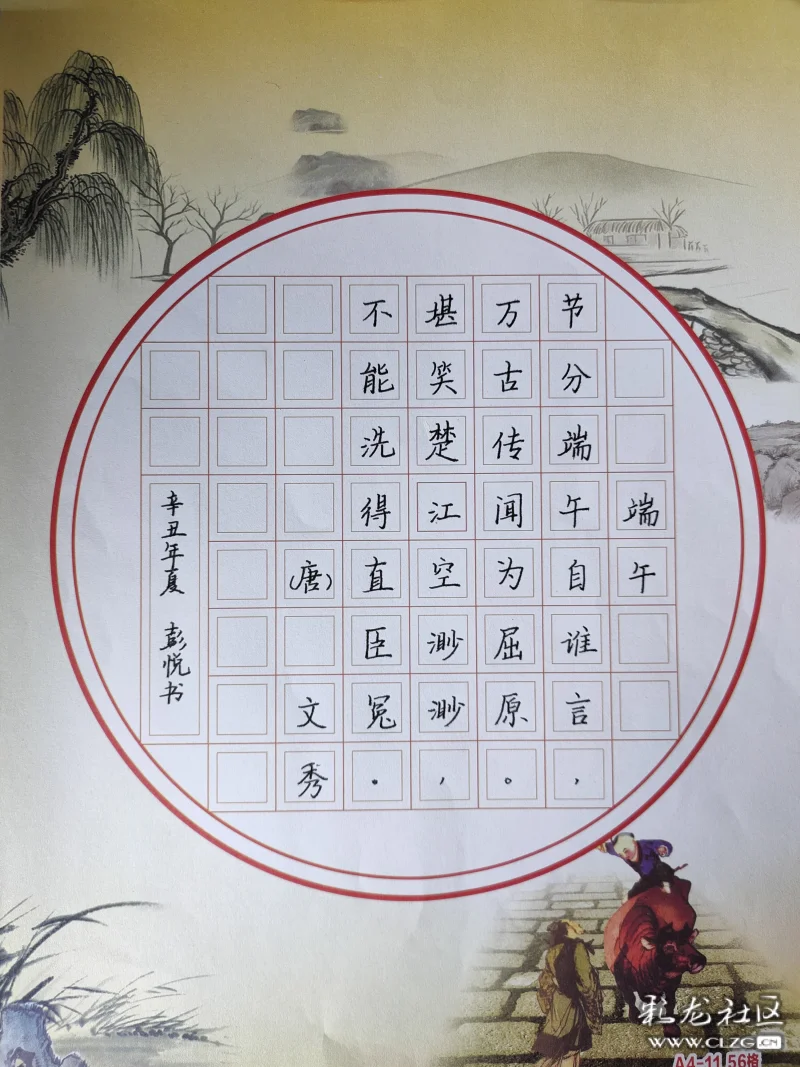 端午
节分端午自谁言，
万古传闻为屈原。
堪笑楚江空渺渺，
不能洗得直臣冤。
（唐）文秀
辛丑年夏 彭悦书
彩龙社区
WWW.CLZG.CN
A4-11 56格